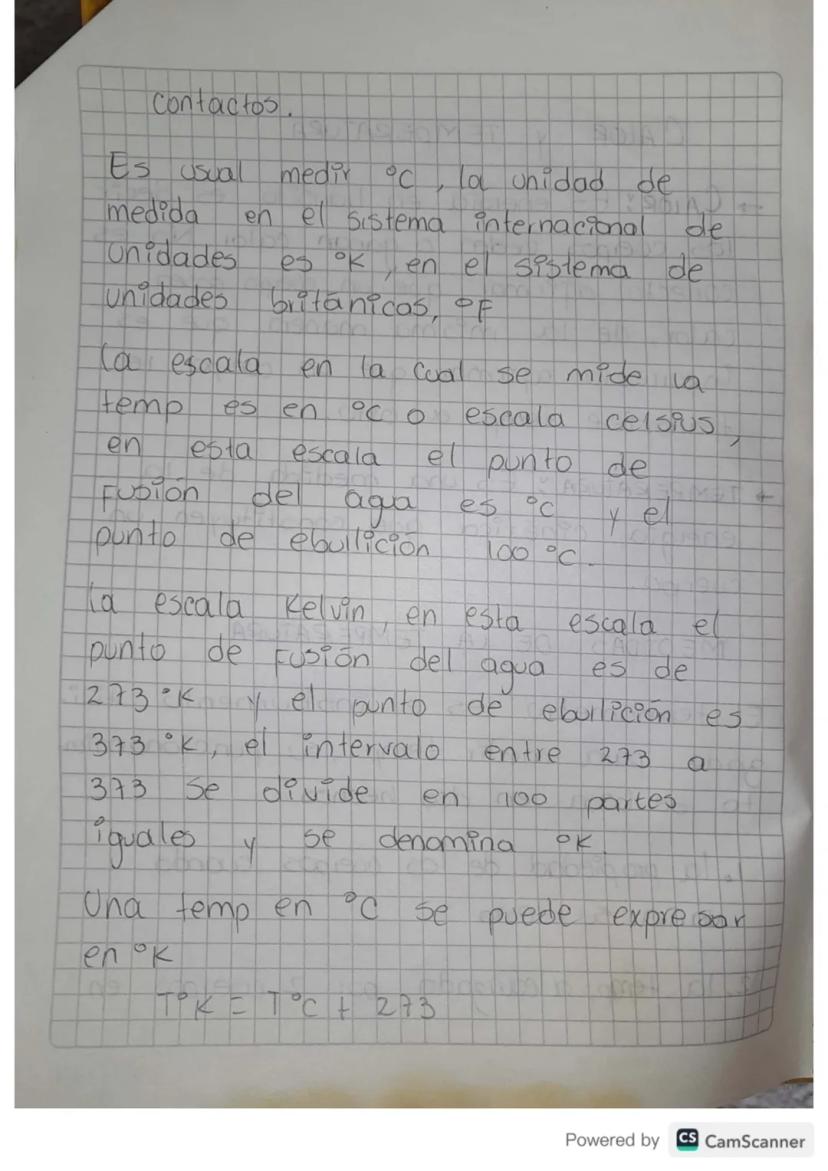 contactos.
Es usual medir °C, la unidad de
medida en el sistema internacional de
unidades es °K, en el sistema de
unidades británicos, °F
La escala en la cual se mide la
temp es en °C o escala celsius,
en esta escala el punto de
fusión del agua es °C y el
punto de ebullición 100 °C.
La escala Kelvin, en esta escala el
punto de fusión del agua es de
273 °K y el punto de ebullición es
373 °K, el intervalo entre 273 a
373 se divide en 100 partes
iguales y se denomina °K.
Una temp en °C se puede expresar
en °K
T°K = T°C + 273
Powered by CS CamScanner